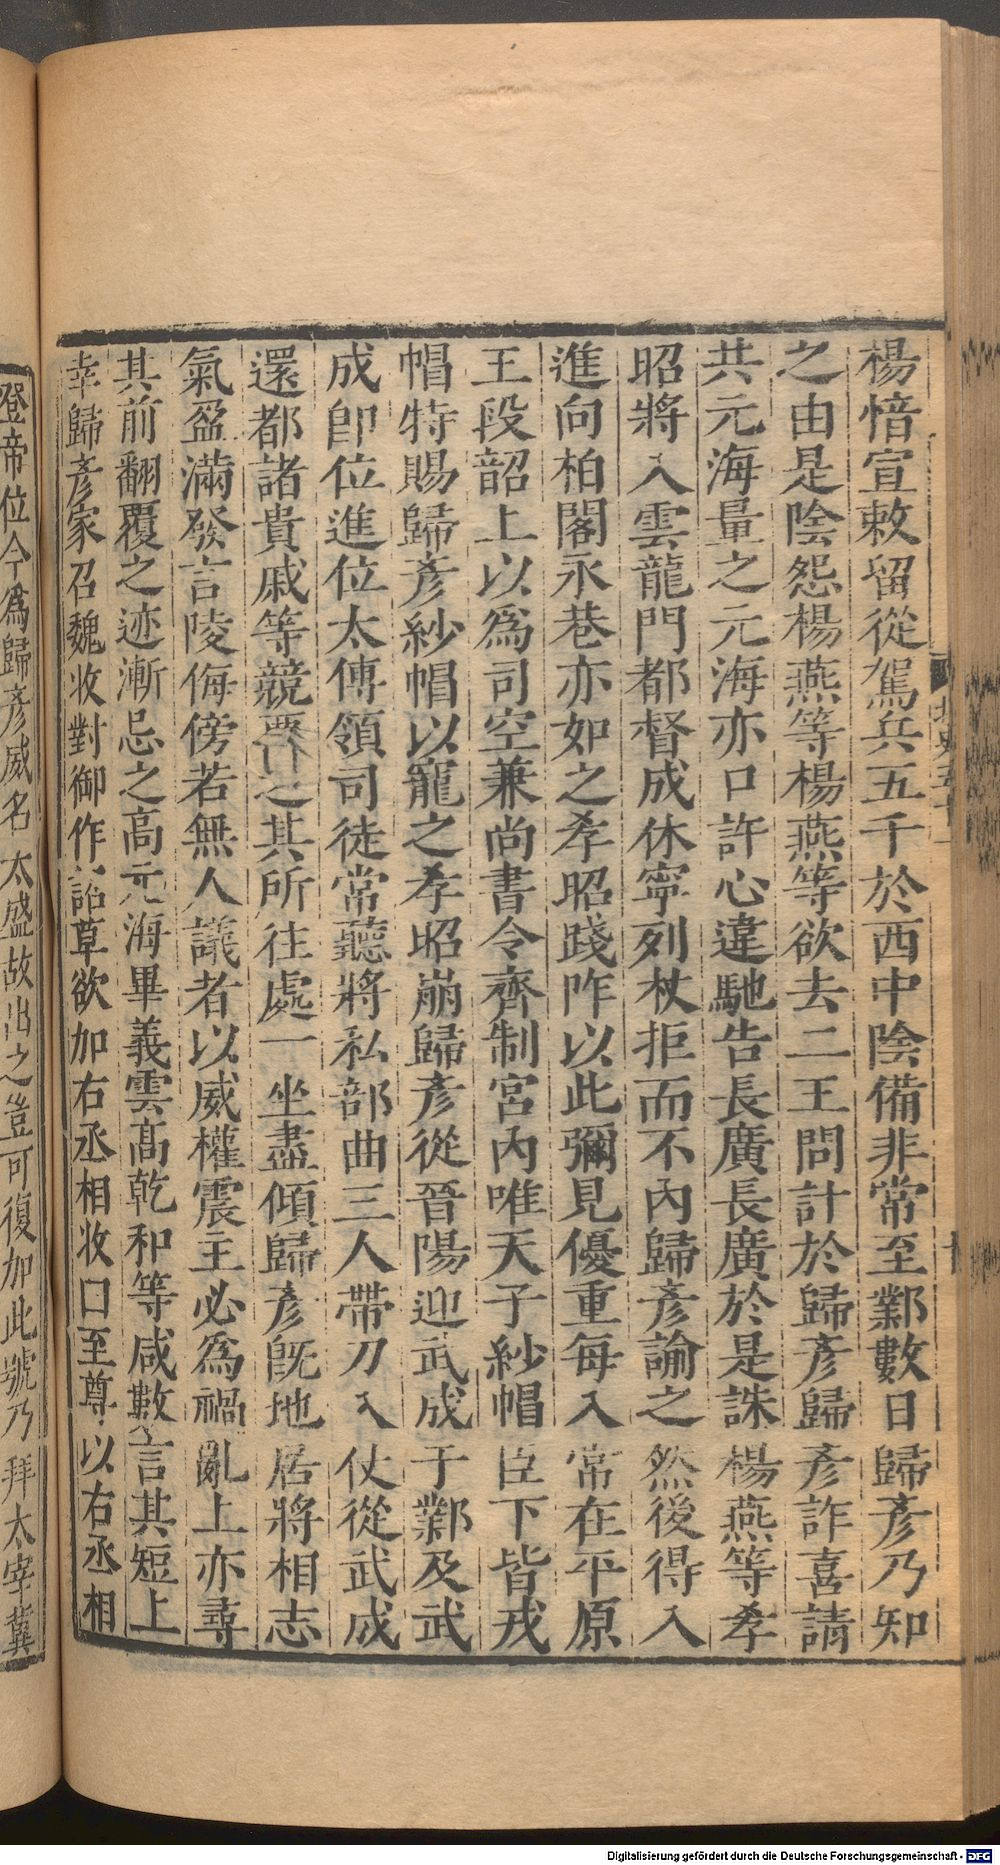 楊愔宣敕留從駕兵五千於西中陰備非常至鄴數日歸彥乃知
之由是陰怨楊燕等楊燕等欲去二王問計於歸彥歸彥詐喜請
共元海量之元海亦口許心違馳告長廣長廣於是誅楊燕等孝
昭將入雲龍門都督成休寧列杖拒而不內歸彥諭之然後得入
進向柏閣永巷亦如之孝昭踐阼以此彌見優重每入常在平原
王段韶上以為司空兼尚書令齊制宮內唯天子紗帽臣下皆戎
帽特賜歸彥紗帽以寵之孝昭崩歸彥從晉陽迎武成于鄴及武
成即位進位太傅領司徒常聽將私部曲三人帶刀入仗從武成
還都諸貴戚等競要之其所往處一坐盡傾歸彥既地居將相志
氣盈滿發言陵侮傍若無人議者以威權震主必為禍亂上亦尋
其前翻覆之迹漸忌之高元海畢義雲高乾和等咸數言其短上
幸歸彥家召魏收對御作詔草欲加右丞相收曰至尊以右丞相
登帝位今為歸彥威名太盛故出之豈可復加此號乃拜太宰冀
Digitalisierung gefördert durch die Deutsche Forschungsgemeinschaft - DFG